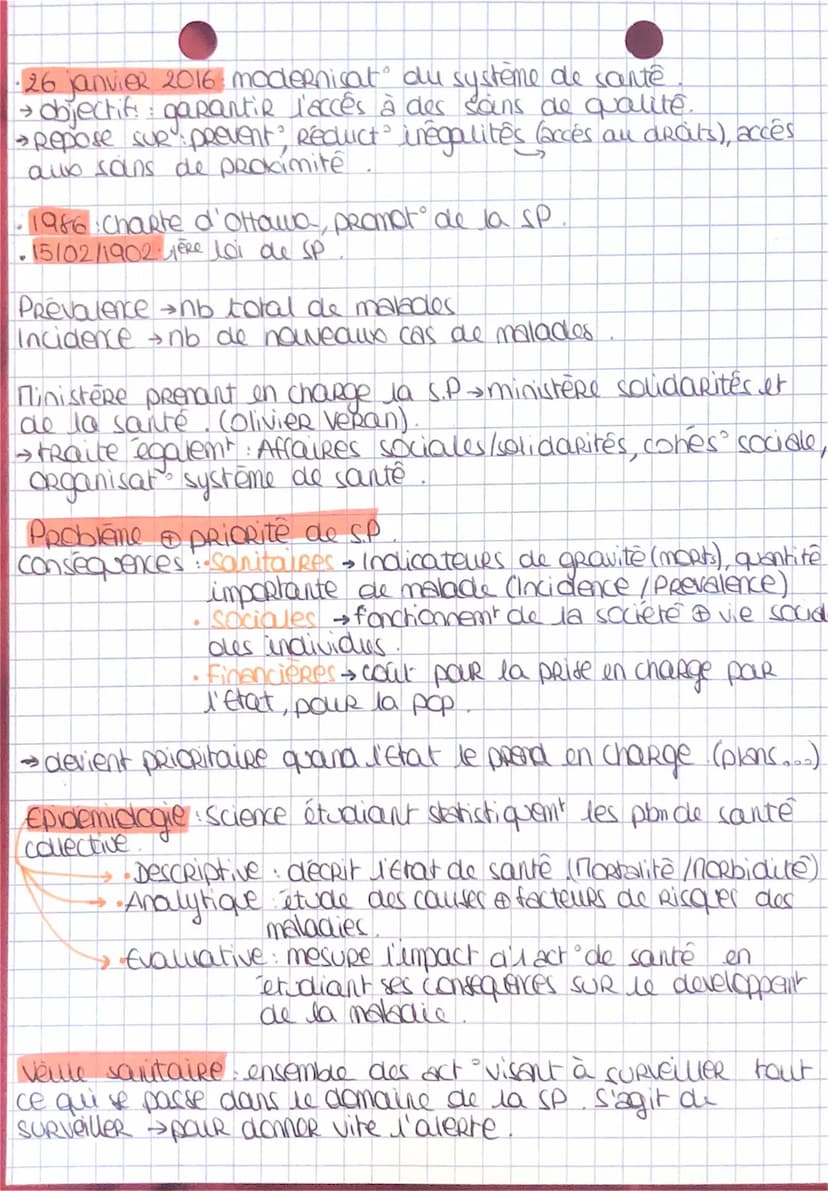 · 26 janvier 2016 : modernisat° du système de santé.
→ objectif : garantir l'accès à des soins de qualité.
→ Repose sur : prévent°, réduct° inégalités (accès au droits), accès
aux soins de proximité.
· 1986 : Charte d'Ottawa, promot° de la SP.
· 15/02/1902 : 1ère loi de SP.
Prévalence → nb total de malades
Incidence → nb de nouveaux cas de malades.
Ministère prenant en charge la S.P → ministère solidarités et
de la santé. (Olivier Veran).
→ traite égalemt : Affaires sociales/solidarités, cohés° sociale,
organisat° système de santé.
Problème ⊕ priorité de S.P.
conséquences : · sanitaires → Indicateurs de gravité (morts), quantité
importante de malade (Incidence / Prévalence)
· sociales → fonctionnemt de la société ⊕ vie social
des individus.
· Financières → coût pour la prise en charge par
l'Etat, pour la pop.
→ devient prioritaire quand l'Etat le prend en charge. (plans...)
Epidémiologie : science étudiant statistiquemt les pbm de santé
collective.
· Descriptive : décrit l'état de santé (Mortalité / Morbidité)
· Analytique : étude des causes ⊕ facteurs de risques des
maladies.
· Évaluative : mesure l'impact d'1 act° de santé en
étudiant ses conséquences sur le développemt
de la maladie.
Veille sanitaire : ensemble des act° visant à surveiller tout
ce qui se passe dans le domaine de la SP. S'agit de
surveiller → pour donner vite l'alerte.